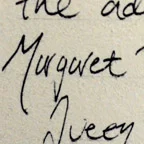 the ad
Margaret
Queen